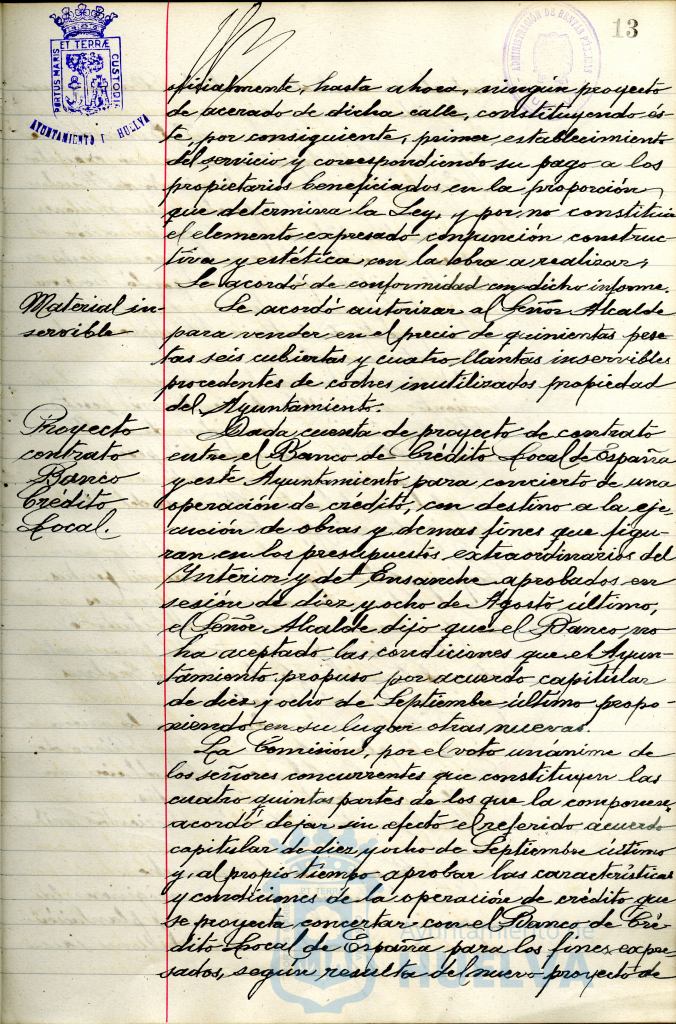 13
PORTUS MARIS ET TERRÆ CUSTODIA
AYUNTAMIENTO HUELVA
oficialmente, hasta ahora, ningún proyecto
de acerado de dicha calle, constituyendo és-
te, por consiguiente, primer establecimiento
del servicio y correspondiendo su pago a los
propietarios beneficiados en la proporción
que determina la Ley, y por no constituir
el elemento expresado conjunción construc-
tiva y estética con la obra a realizar,
Se acordó de conformidad con dicho informe.
Material in-
servible
Se acordó autorizar al Señor Alcalde
para vender en el precio de quinientas pese-
tas seis cubiertas y cuatro llantas inservibles
procedentes de coches inutilizados propiedad
del Ayuntamiento.
Proyecto
contrato
Banco
Crédito
Local.
Dada cuenta de proyecto de contrato
entre el Banco de Crédito Local de España
y este Ayuntamiento para concierto de una
operación de crédito, con destino a la eje-
cución de obras y demas fines que figu-
ran en los presupuestos extraordinarios del
Interior y del Ensanche aprobados en
sesión de diez y ocho de Agosto último,
el Señor Alcalde dijo que el Banco no
ha aceptado las condiciones que el Ayun-
tamiento propuso por acuerdo capitular
de diez y ocho de Septiembre último propo-
niendo en su lugar otras nuevas.
La Comisión, por el voto unánime de
los señores concurrentes que constituyen las
cuatro quintas partes de los que la componen,
acordó dejar sin efecto el referido acuerdo
capitular de diez y ocho de Septiembre último
y, al propio tiempo aprobar las características
y condiciones de la operación de crédito que
se proyecta concertar con el Banco de Cré-
dito Local de España para los fines expre-
sados, según resulta del nuevo proyecto de
Ayuntamiento de
HUELVA